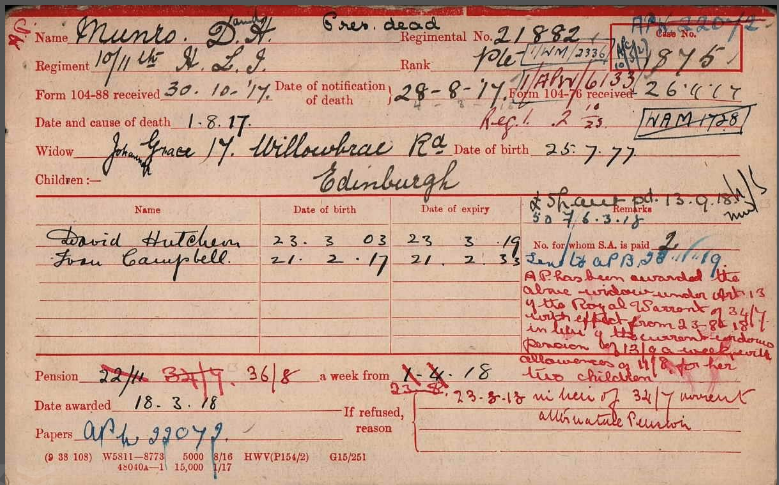 Pres. dead
APW 22072
Name Munro. D. H. Regimental No. 21882 Case No.
David
Regiment 10/11th H. L. I. Rank Pte 1/WM/2336 1875
1/APW/6133
Form 104-88 received 30. 10. '17. Date of notification of death 28-8-'17. Form 104-76 received 26.
Date and cause of death 1.8.17. Reg. 2 WAM 1728
Widow Grace 17. Willowbrae Rd Date of birth 25.7.77
Children :— Edinburgh
pd. 13.9.18
Name Date of birth Date of expiry Remarks
50 7/6.3.18
David Hutcheon 23. 3 03 23 3 .19 No. for whom S.A. is paid 2
Ivan Campbell. 21. 2. 17 21. 2. 33 Sent to APB 23
AP has been awarded the
above widow under Art. 13
of the Royal Warrant of 34/7
with effect from 23-8-18
in lieu of the current widows
pension of a week with
allowances of for her
two children
Pension 22/11 36/8 a week from 1. 4. 18
23.8.
Date awarded 18. 3. 18 If refused, reason 23-8-18 in lieu of 34/7 current
alternative Pension
Papers APW 22072.
(9 38 108) W5811—8773 5000 8/16 HWV(P154/2) G15/251
48040A—1 15,000 1/17